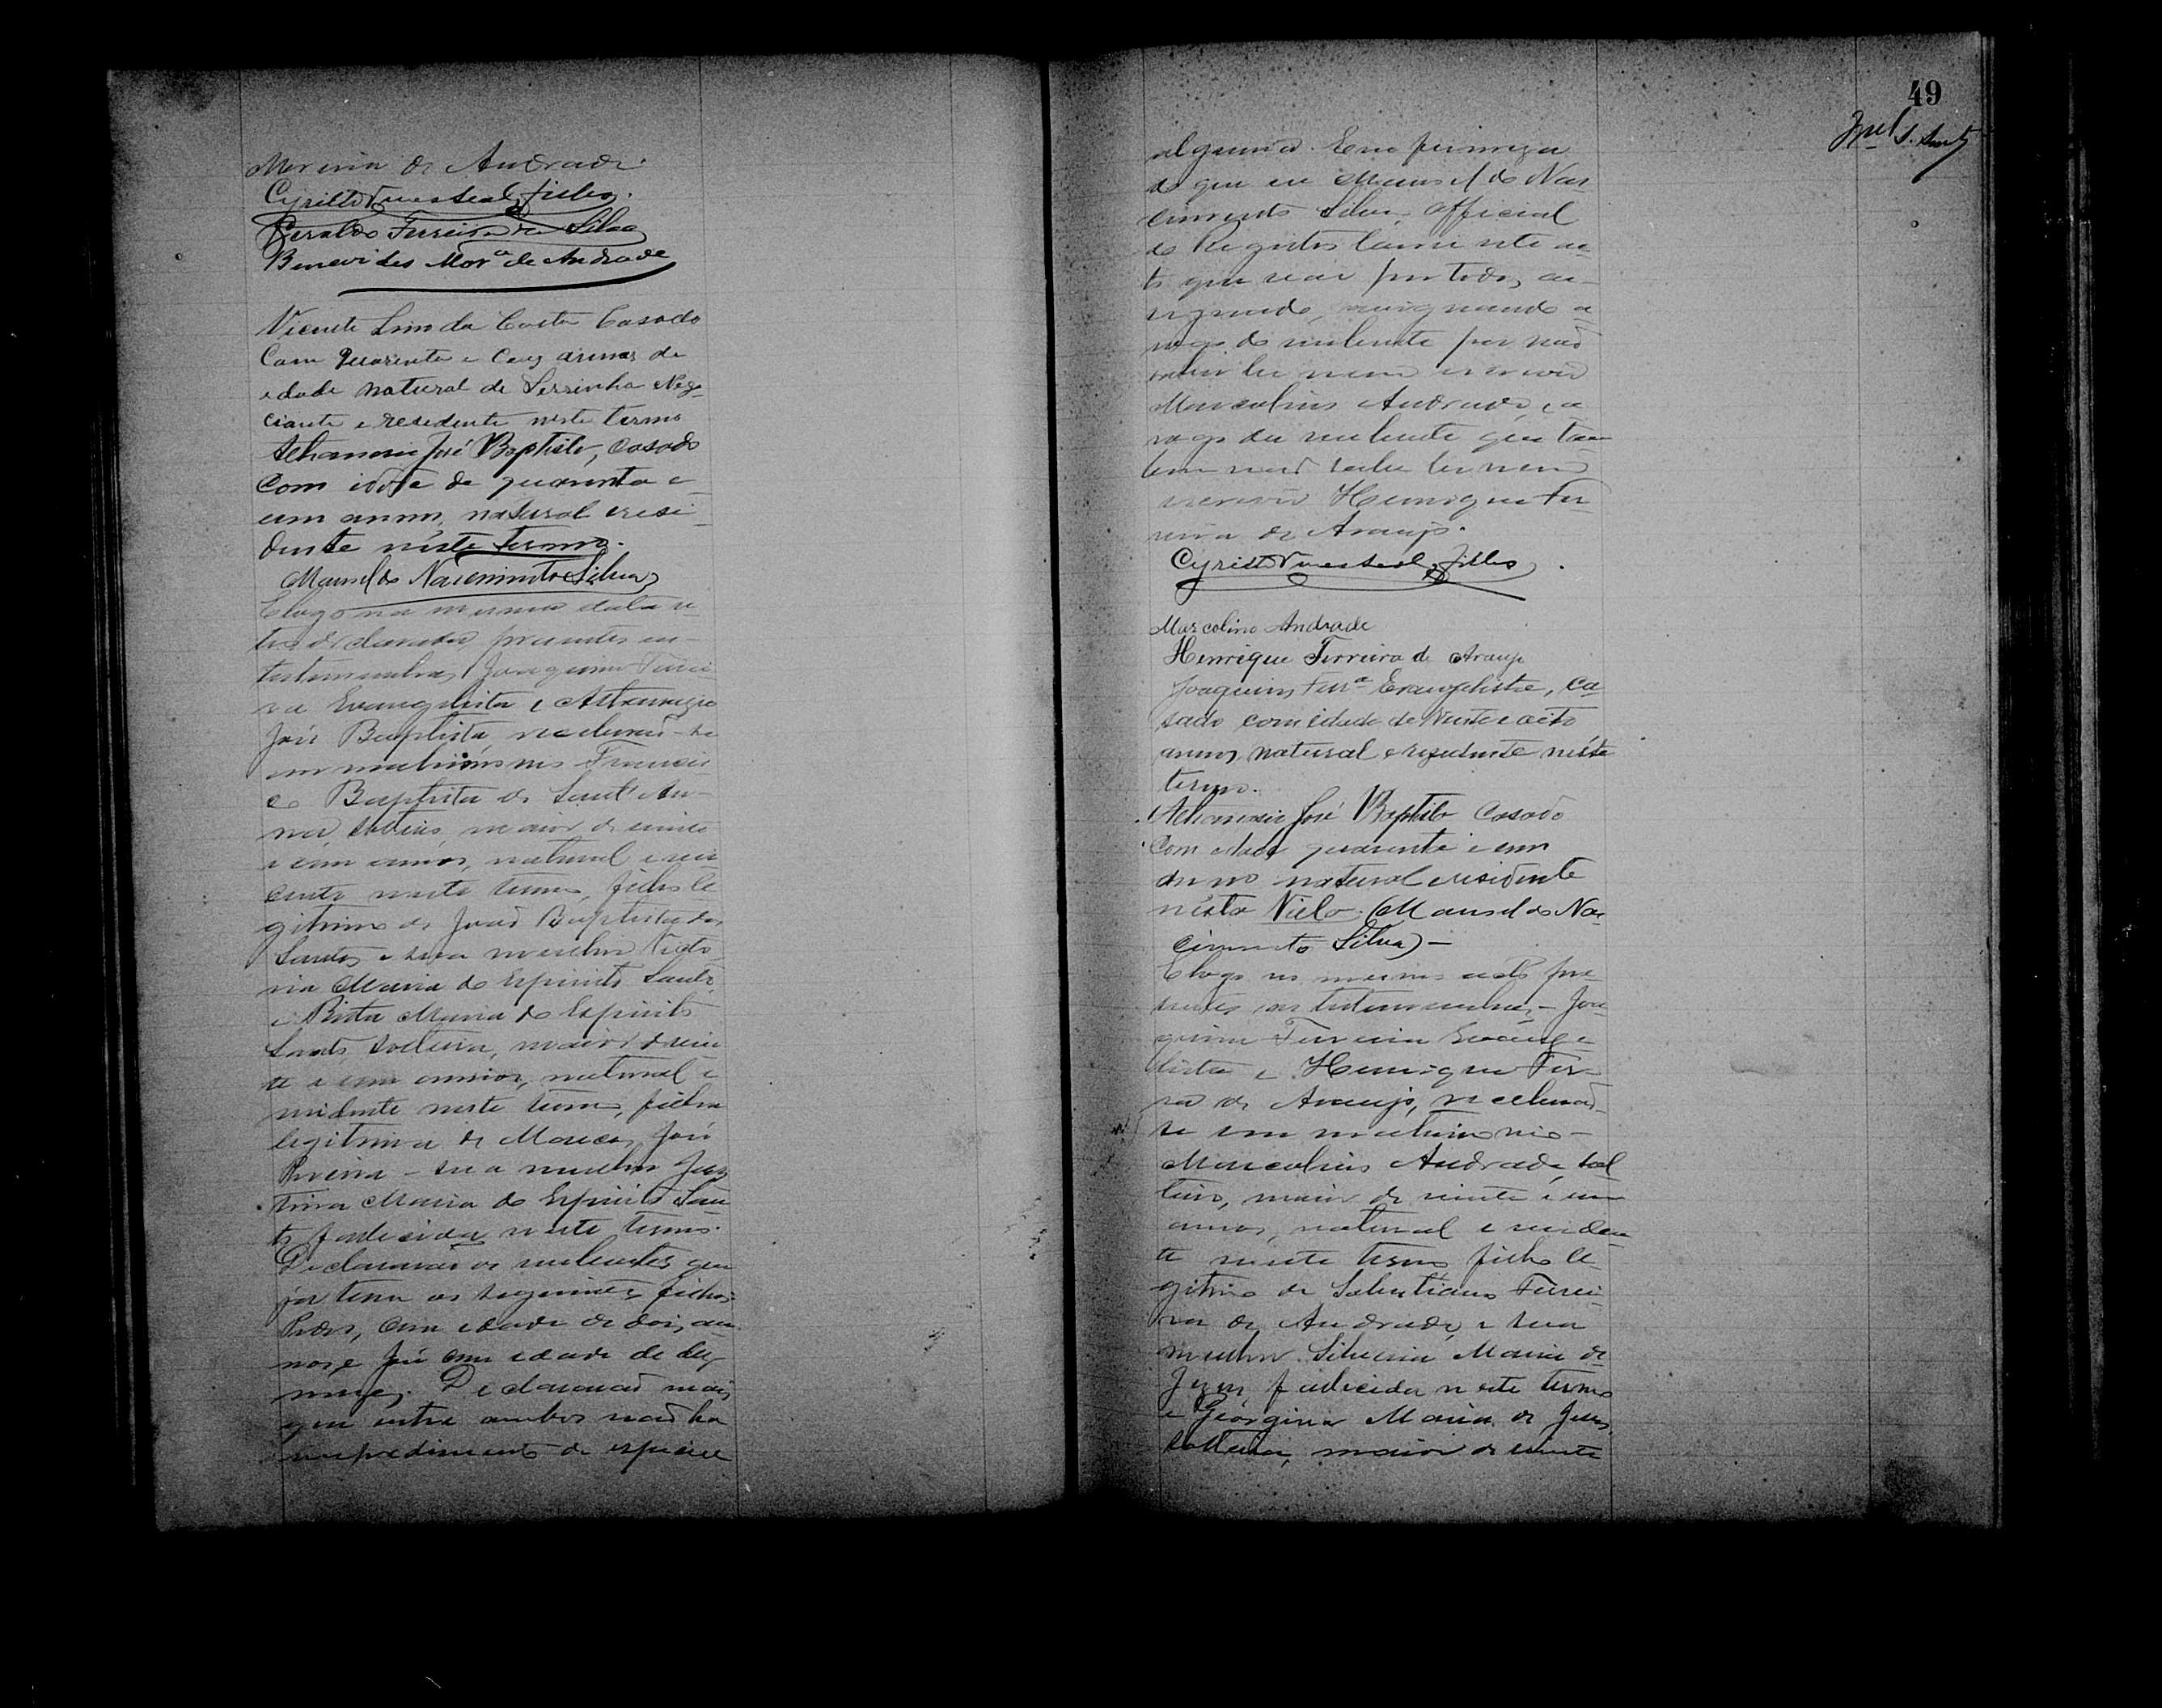 Moreira de Andrade.
Cyrillo Filho.
Geraldo Ferreira da Silva
Benevides Mor.ª de Andrade
Vicente Lino da Costa Casado
Com quarenta e annos de
edade natural de Serrinha Nego-
ciante e residente neste termo
José Baptista, casado
com idade de quarenta e
um annos, natural e resi-
dente néste termo.
Manuel do Nascimento Silva
E logo na mesma data e
presentes as
testemunhas Joaquim Ferrei-
ra Evangelista e
José Baptista receberaõ-se
em matrimonio Francis-
co Baptista de Sant'An-
na, solteiro, maior de vinte
e um annos, natural e resi-
dente neste termo, filho le-
gitimo de Joaõ Baptista dos
Santos e sua mulher Victo-
ria Maria do Espirito Santo,
e Rita Maria do Espirito
Santo solteira, maior de vin-
te e um annos, natural e
residente neste termo, filha
legitima de José
Pereira e sua mulher
Maria do Espirito San-
to fallecida neste termo.
Declararaõ os nubentes que
já tem os seguintes filhos:
Pedro, com edade de dois an-
nos e José com edade de dez
mezes. Declararaõ mais
que entre ambos naõ ha
impedimento de especie
49
alguma. E em firmeza
do que eu Manuel do Nas-
cimento Silva, official
do Registro lavrei este ac-
to que vae por todos as-
signado, assignando a
rogo do nubente por naõ
saber ler nem escrever
Marcolino Andrade, e a
rogo da nubente que tam-
bem naõ sabe ler nem
escrever Henrique Fer-
reira de Araujo.
Cyrillo Filho.
Marcolino Andrade
Henrique Ferreira de Araujo
Joaquim Ferrª Evangelista, ca-
sado com edade de vinte e oito
annos natural e rezidente néste
termo.
José Baptista Casado
Com edade quarenta e um
anno natural e residente
nésta Villa. Manuel do Nas-
cimento Silva
E logo no mesmo acto pre-
sentes as testemunhas Joa-
quim Ferreira Evange-
lista e Henrique Ferr-
ra de Araujo, receberaõ-
se em matrimonio
Marcolino Andrade, sol-
teiro, maior de vinte e um
annos, natural e residen-
te neste termo filho le-
gitimo de Salustiano Ferrei-
ra de Andrade, e sua
mulher Silveria Maria de
Jezus fallecida neste termo
e Georgina Maria de Jesus,
solteira, maior de vinte